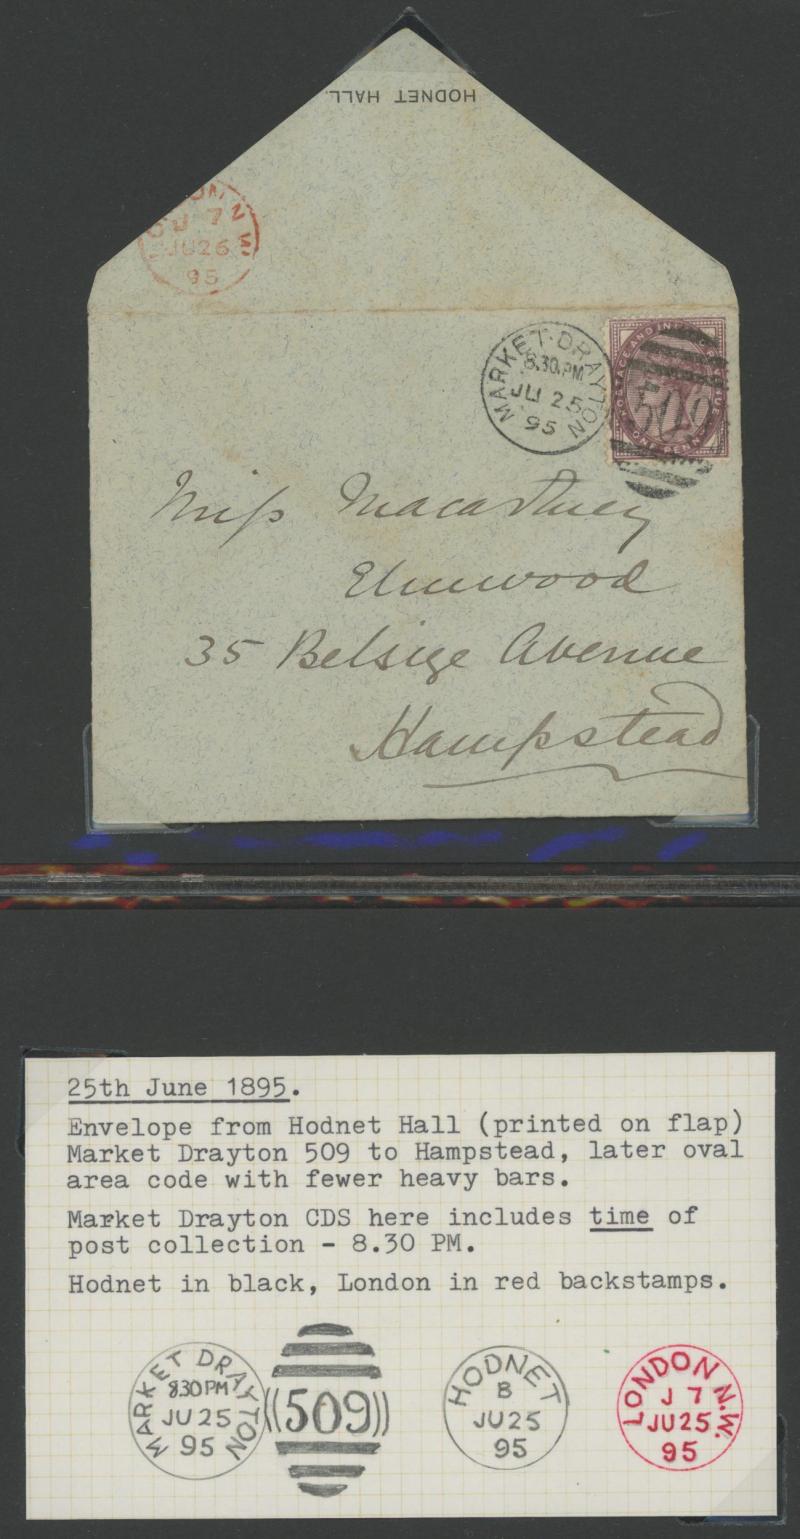 HODNET HALL.
JU 26
95
MARKET-DRAYTON
8.30.PM
JU 25
95
POSTAGE AND INLAND REVENUE
509
ONE PENNY
Miss Macartney
Elmwood
35 Belsize Avenue
Hampstead
25th June 1895.
Envelope from Hodnet Hall (printed on flap)
Market Drayton 509 to Hampstead, later oval
area code with fewer heavy bars.
Market Drayton CDS here includes time of
post collection - 8.30 PM.
Hodnet in black, London in red backstamps.
MARKET DRAYTON
8.30 PM
JU 25
95
509
HODNET
B
JU 25
95
LONDON N.W.
J 7
JU 25
95